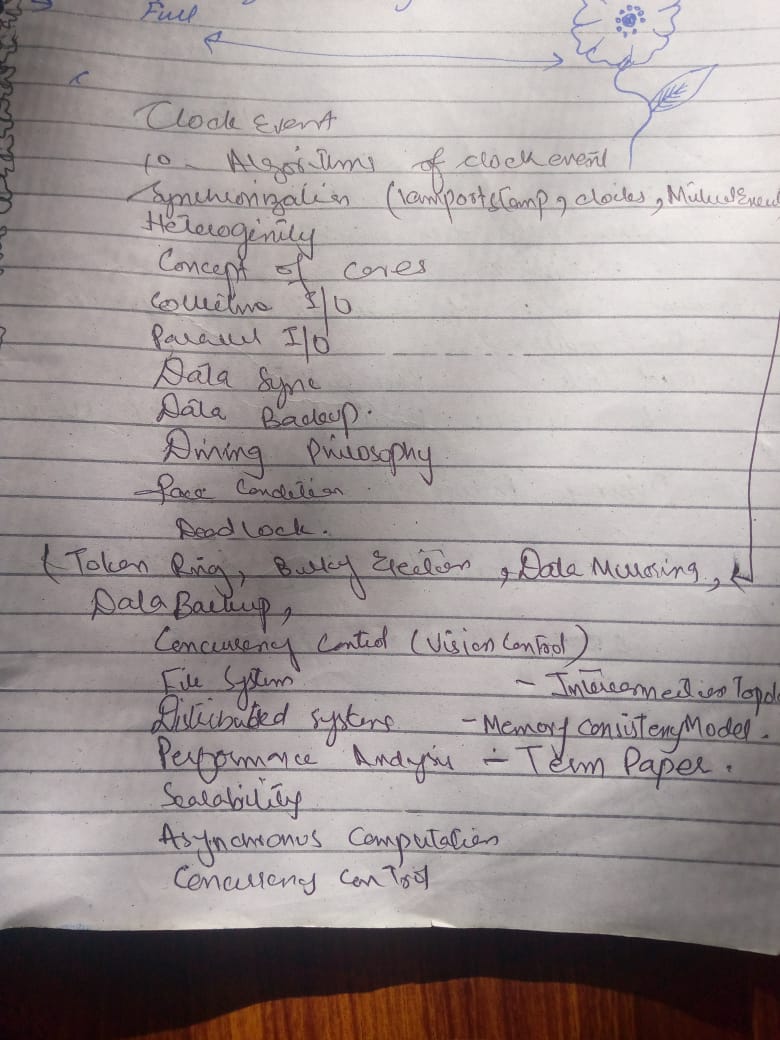 Full
Clock Event
10 - Algorithms of clock event
Synchronization (Lamportstamp, clocks, Mutual
Heterogenity
Concept of cores
I/O
Parallel I/O
Data Sync
Data Backup.
Dining Philosophy
Race Condition
Deadlock.
(Token Ring, Bully Election, Data Mirroring,
Data Backup,
Concurrency Control (Vision Control)
File System
- Topol
Distributed systems - Memory Consistency Model.
Performance Analysis - Term Paper.
Scalability
Asynchronus Computation
Concurrency Control